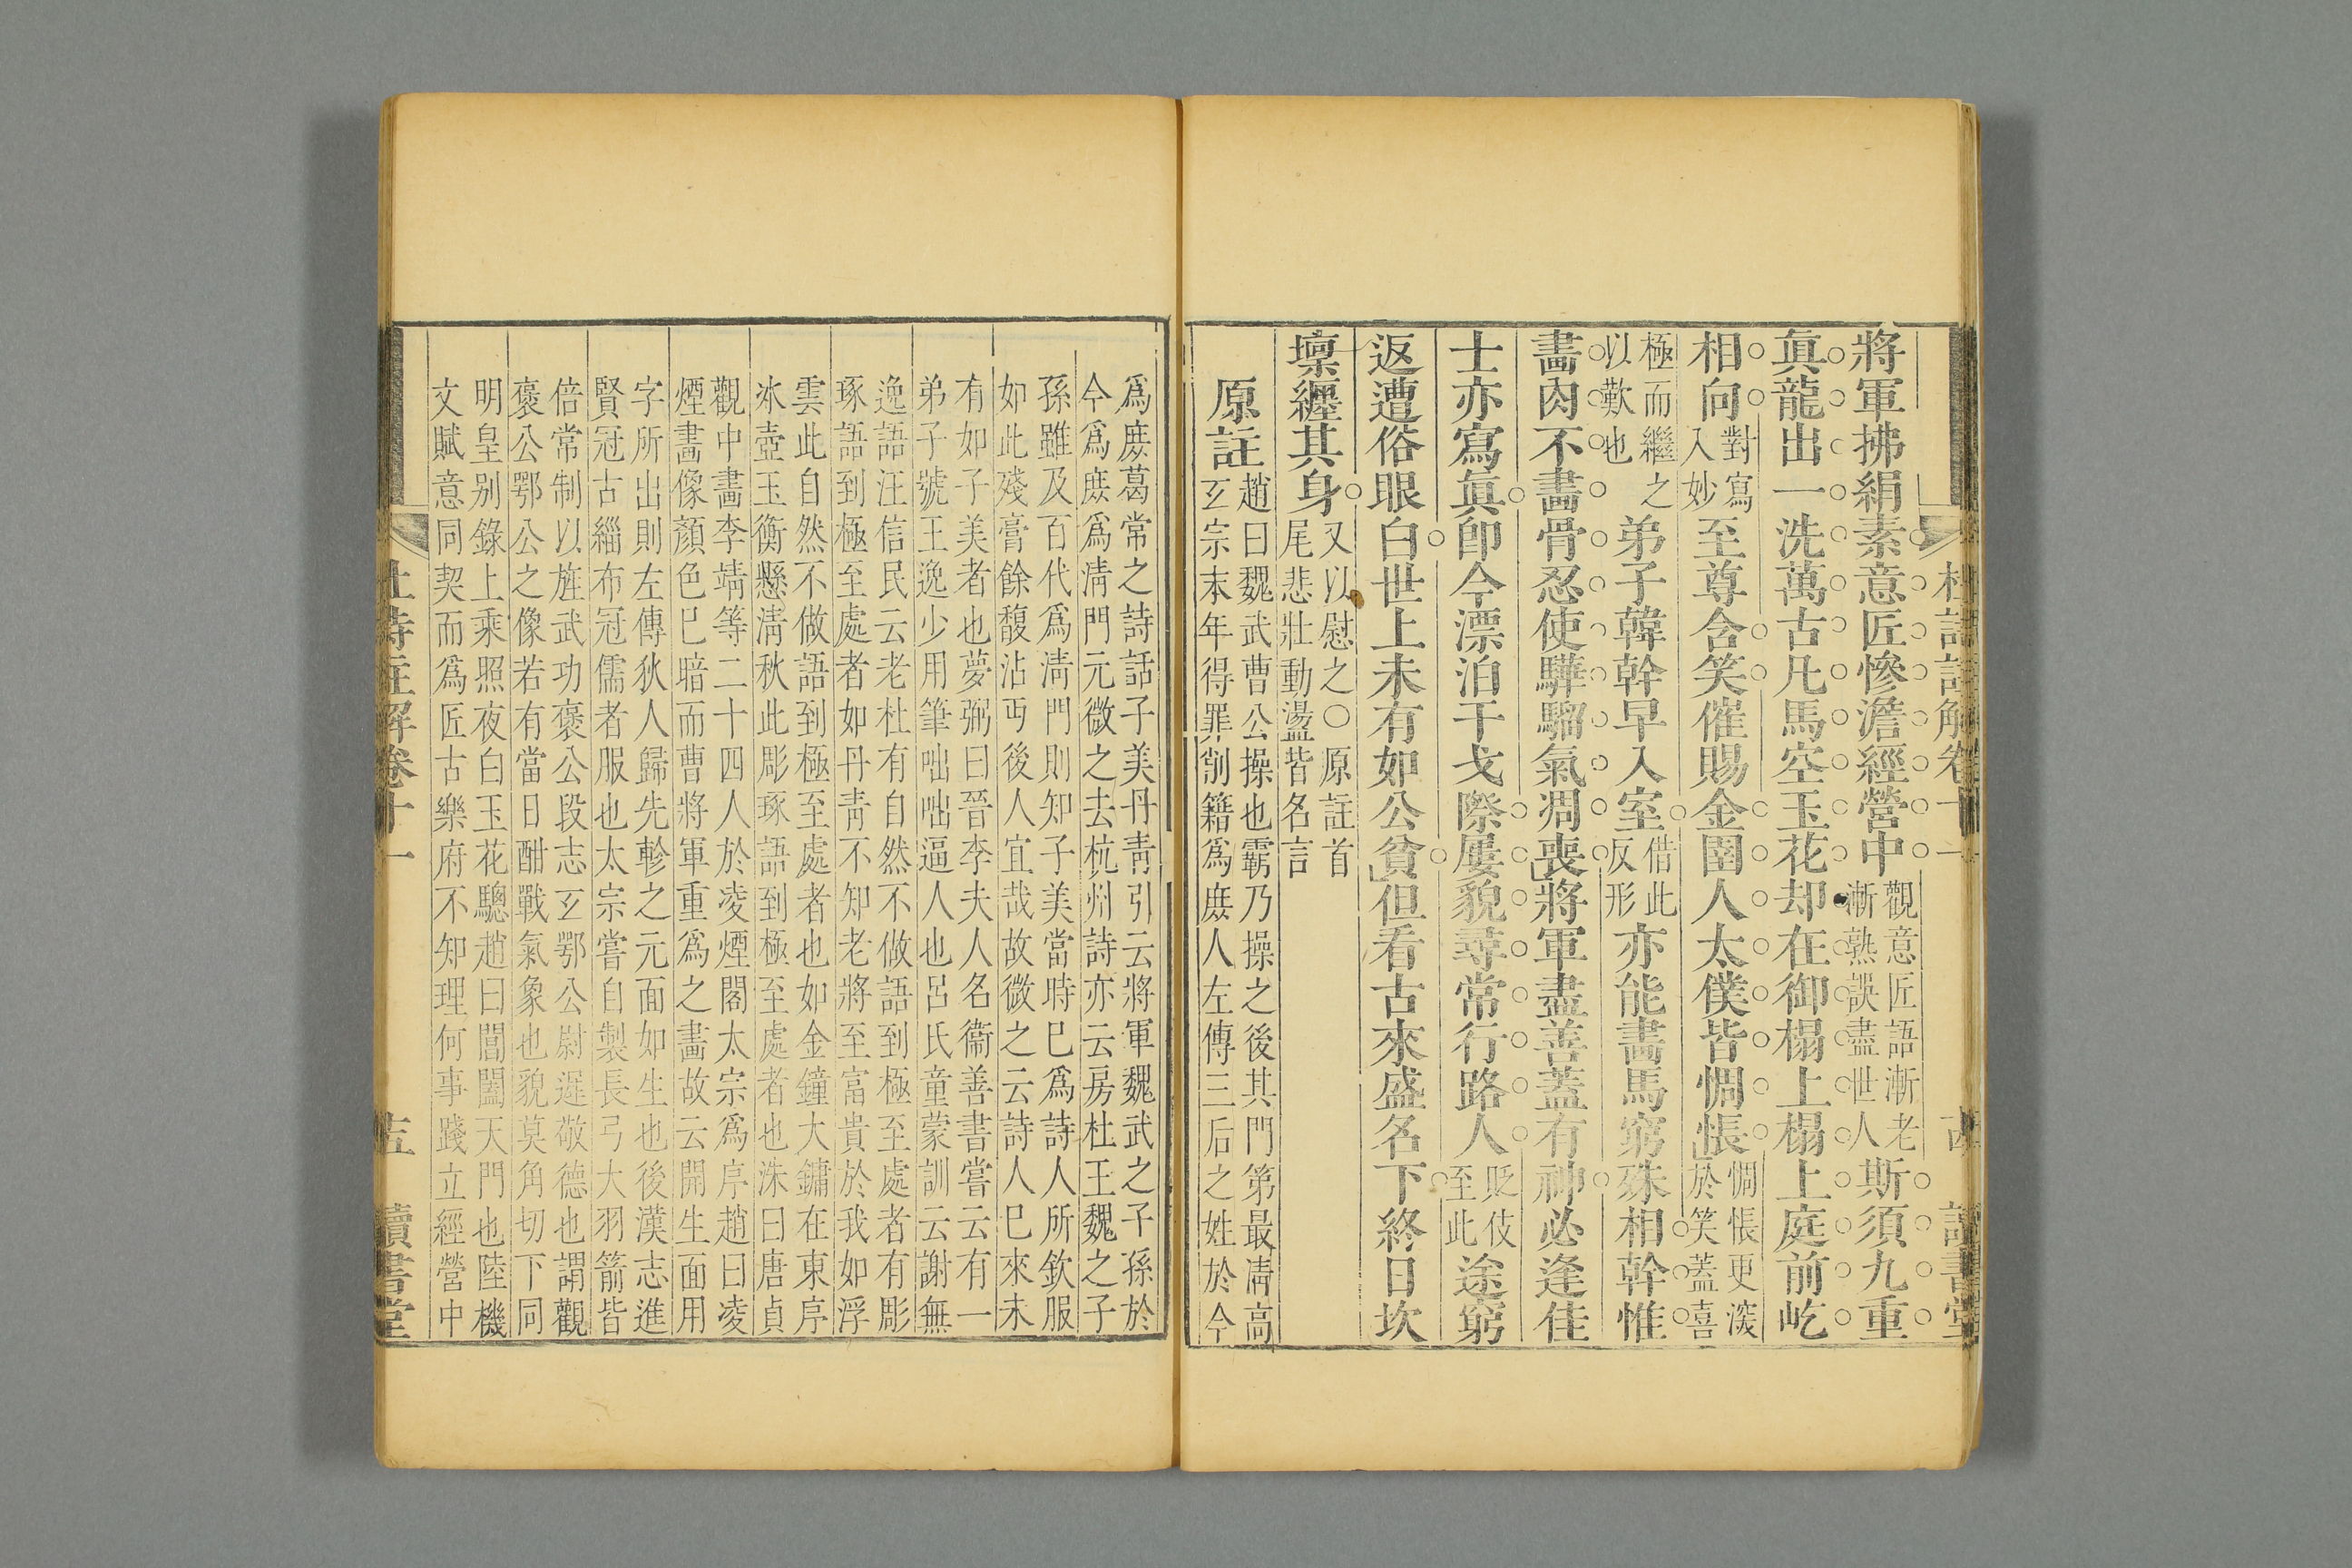 杜詩註解卷十一 古 讀書堂
將軍拂絹素意匠慘澹經營中觀意匠語漸老漸熟談盡世人斯須九重
真龍出一洗萬古凡馬空玉花却在御榻上榻上庭前屹
相向對寫入妙至尊含笑催賜金圉人太僕皆惆悵惆悵更深於笑蓋喜
極而繼之以歎也弟子韓幹早入室借此反形亦能畫馬窮殊相幹惟
畫肉不畫骨忍使驊騮氣凋喪將軍盡善蓋有神必逢佳
士亦寫真卽今漂泊干戈際屢貌尋常行路人貶伎至此途窮
返遭俗眼白世上未有如公貧但看古來盛名下終日坎
壈纒其身又以慰之○原註首尾悲壯動盪皆名言
原註趙曰魏武曹公操也霸乃操之後其門第最淸高玄宗末年得罪削籍爲庶人左傳三后之姓於今
爲庶葛常之詩話子美丹靑引云將軍魏武之子孫於
今爲庶爲淸門元微之去杭州詩亦云房杜王魏之子
孫雖及百代爲淸門則知子美當時已爲詩人所欽服
如此殘膏餘馥沾丐後人宜哉故微之云詩人已來未
有如子美者也夢弼曰晉李夫人名衞善書嘗云有一
弟子號王逸少用筆咄咄逼人也呂氏童蒙訓云謝無
逸語汪信民云老杜有自然不做語到極至處者有彫
琢語到極至處者如丹靑不知老將至富貴於我如浮
雲此自然不做語到極至處者也如金鐘大鏞在東序
冰壺玉衡懸淸秋此彫琢語到極至處者也洙曰唐貞
觀中畫李靖等二十四人於凌煙閣太宗爲序趙曰凌
煙畫像顏色已暗而曹將軍重爲之畫故云開生面用
字所出則左傳狄人歸先軫之元面如生也後漢志進
賢冠古緇布冠儒者服也太宗嘗自製長弓大羽箭皆
倍常制以旌武功褒公段志玄鄂公尉遲敬德也謂觀
褒公鄂公之像若有當日酣戰氣象也貌莫角切下同
明皇別錄上乘照夜白玉花驄趙曰閶闔天門也陸機
文賦意同契而爲匠古樂府不知理何事踐立經營中
杜詩註解卷十一 十五 讀書堂